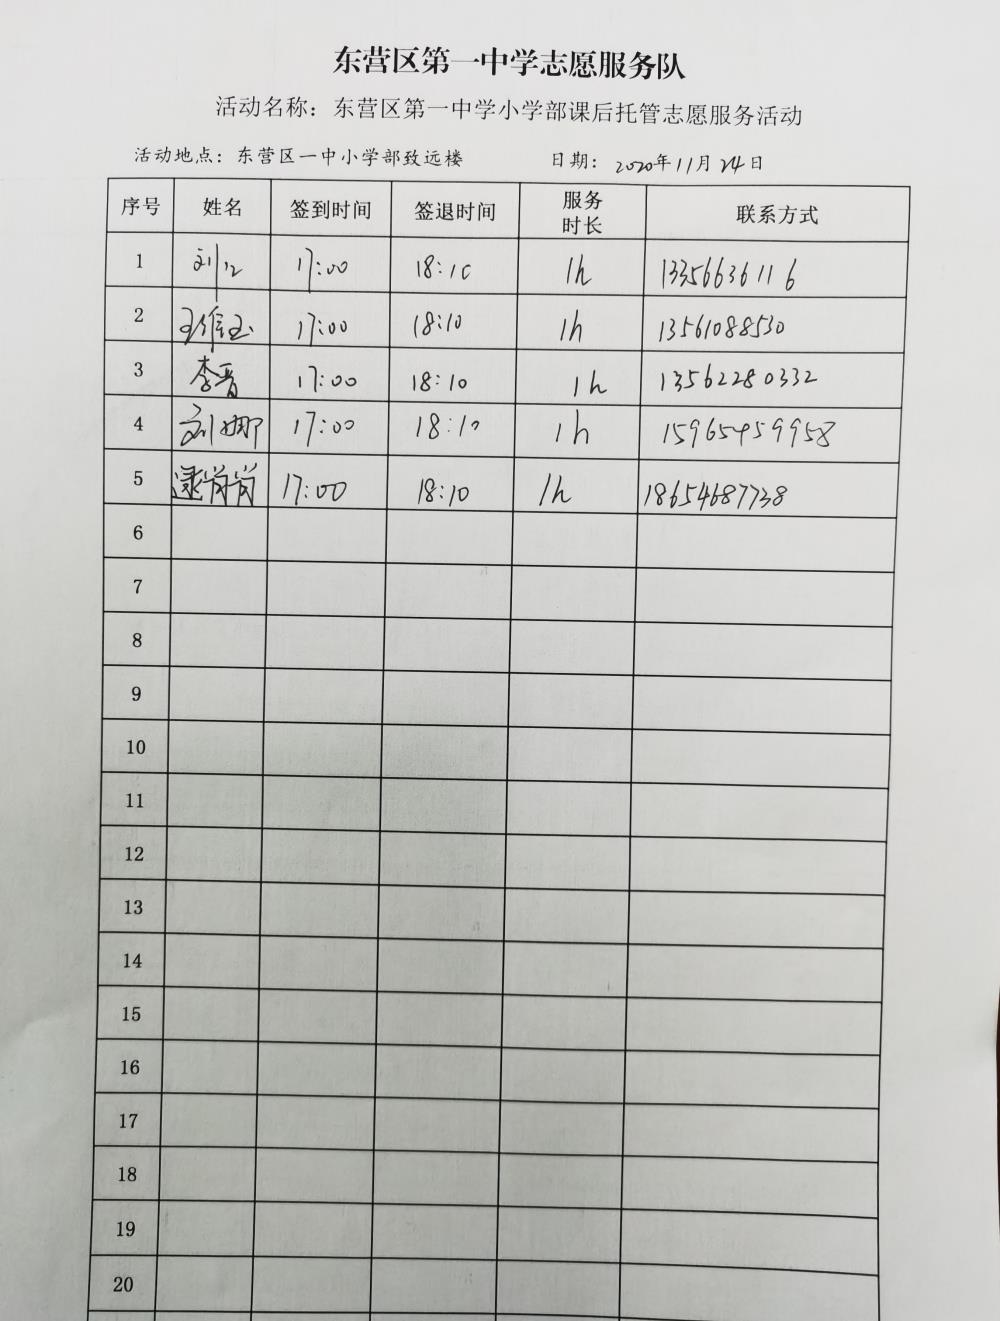 东营区第一中学志愿服务队
活动名称：东营区第一中学小学部课后托管志愿服务活动
活动地点：东营区一中小学部致远楼 日期：2020年11月24日
序号 姓名 签到时间 签退时间 服务时长 联系方式
1 刘 17:00 18:10 1h 13356636116
2 王维玉 17:00 18:10 1h 13561088530
3 李晋 17:00 18:10 1h 13562280332
4 刘娜 17:00 18:10 1h 15965459958
5 逯肖肖 17:00 18:10 1h 18654687738
6
7
8
9
10
11
12
13
14
15
16
17
18
19
20